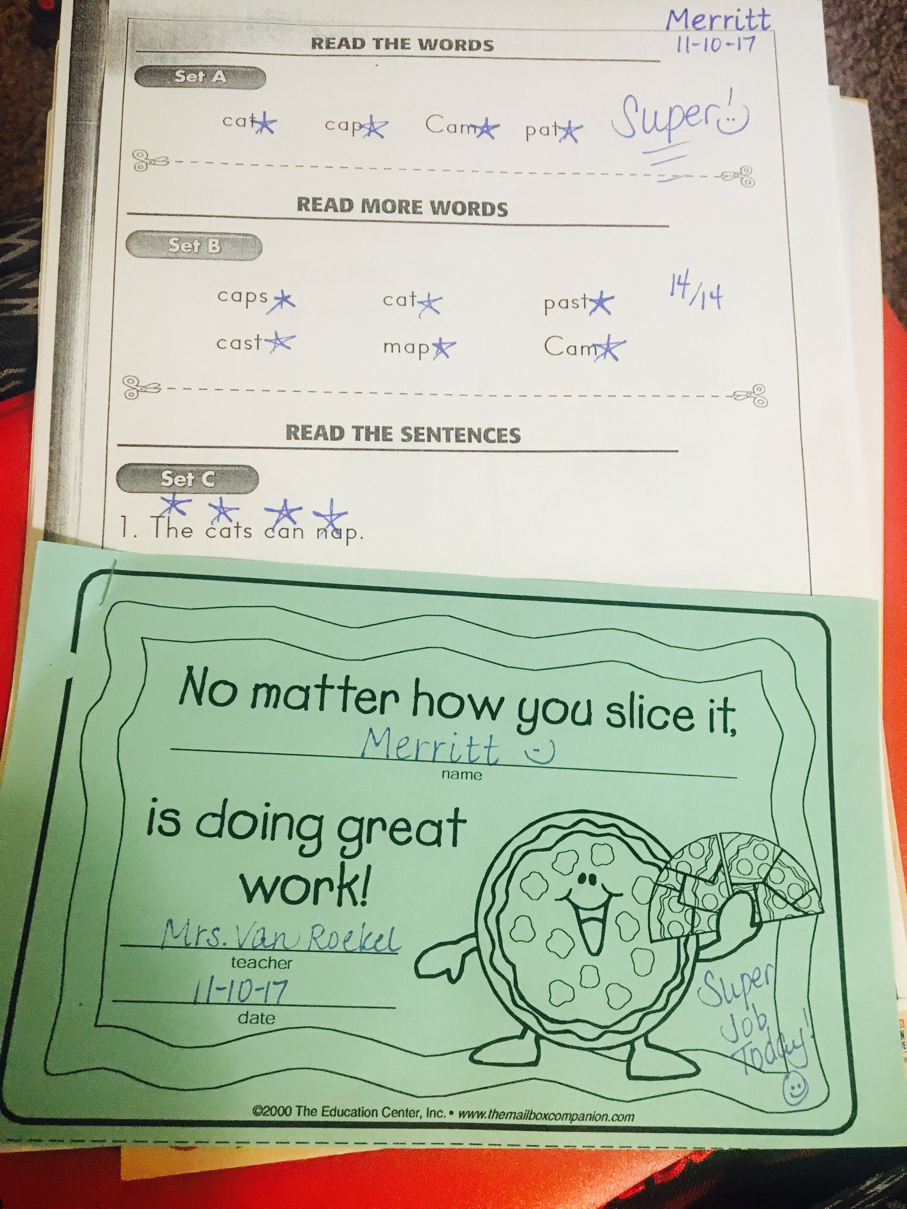 Merritt
11-10-17
READ THE WORDS
Set A
cat cap Cam pat Super!
READ MORE WORDS
Set B
caps cat past 14/14
cast map Cam
READ THE SENTENCES
Set C
1. The cats can nap.
No matter how you slice it,
Merritt
name
is doing great
work!
Mrs. Van Roekel
teacher
11-10-17
date
Super
Job
Today!
©2000 The Education Center, Inc. • www.themailboxcompanion.com